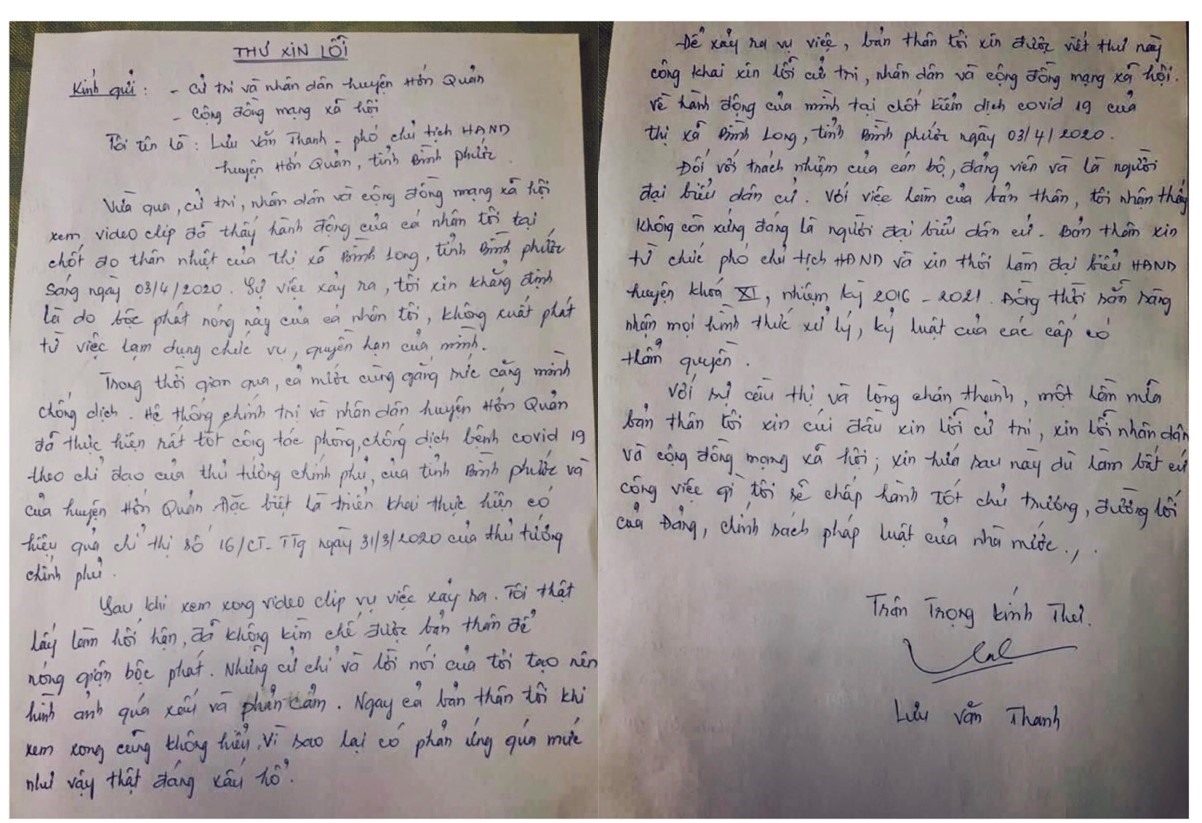 THƯ XIN LỖI
Kính gửi : - Cử tri và nhân dân huyện Hớn Quản
- Cộng đồng mạng xã hội
Tôi tên là : Lưu Văn Thanh - phó chủ tịch HĐND
huyện Hớn Quản, tỉnh Bình phước.
Vừa qua, cử tri, nhân dân và cộng đồng mạng xã hội
xem video clip đã thấy hành động của cá nhân tôi tại
chốt đo thân nhiệt của thị xã Bình Long, tỉnh Bình phước
sáng ngày 03/4/2020. Sự việc xảy ra, tôi xin khẳng định
là do bộc phát nóng nảy của cá nhân tôi, không xuất phát
từ việc lạm dụng chức vụ, quyền hạn của mình.
Trong thời gian qua, cả nước cùng gắng sức căng mình
chống dịch. Hệ thống chính trị và nhân dân huyện Hớn Quản
đã thực hiện rất tốt công tác phòng, chống dịch bệnh covid 19
theo chỉ đạo của thủ tướng chính phủ, của tỉnh Bình phước và
của huyện Hớn Quản. Đặc biệt là triển khai thực hiện có
hiệu quả chỉ thị số 16/CT-TTg ngày 31/3/2020 của thủ tướng
chính phủ.
Sau khi xem xong video clip vụ việc xảy ra. Tôi thật
lấy làm hối hận, đã không kìm chế được bản thân để
nóng giận bộc phát. Những cử chỉ và lời nói của tôi tạo nên
hình ảnh quá xấu và phản cảm. Ngay cả bản thân tôi khi
xem xong cũng không hiểu vì sao lại có phản ứng quá mức
như vậy thật đáng xấu hổ.
Để xảy ra vụ việc, bản thân tôi xin được viết thư này
công khai xin lỗi cử tri, nhân dân và cộng đồng mạng xã hội.
về hành động của mình tại chốt kiểm dịch covid 19 của
thị xã Bình Long, tỉnh Bình phước ngày 03/4/2020.
Đối với trách nhiệm của cán bộ, đảng viên và là người
đại biểu dân cử. Với việc làm của bản thân, tôi nhận thấy
không còn xứng đáng là người đại biểu dân cử. Bản thân xin
từ chức phó chủ tịch HĐND và xin thôi làm đại biểu HĐND
huyện khoá XI, nhiệm kỳ 2016 - 2021. Đồng thời sẵn sàng
nhận mọi hình thức xử lý, kỷ luật của các cấp có
thẩm quyền.
Với sự cầu thị và lòng chân thành, một lần nữa
bản thân tôi xin cúi đầu xin lỗi cử tri, xin lỗi nhân dân
và cộng đồng mạng xã hội; xin hứa sau này dù làm bất cứ
công việc gì tôi sẽ chấp hành tốt chủ trương, đường lối
của Đảng, chính sách pháp luật của nhà nước.,.
Trân Trọng kính Thư.
Lưu Văn Thanh